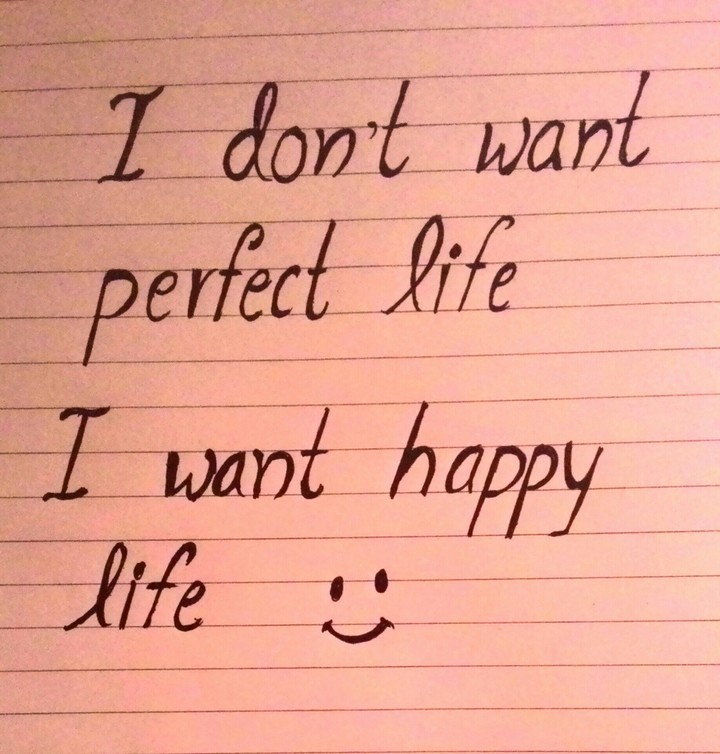 I don't want
perfect life
I want happy
life